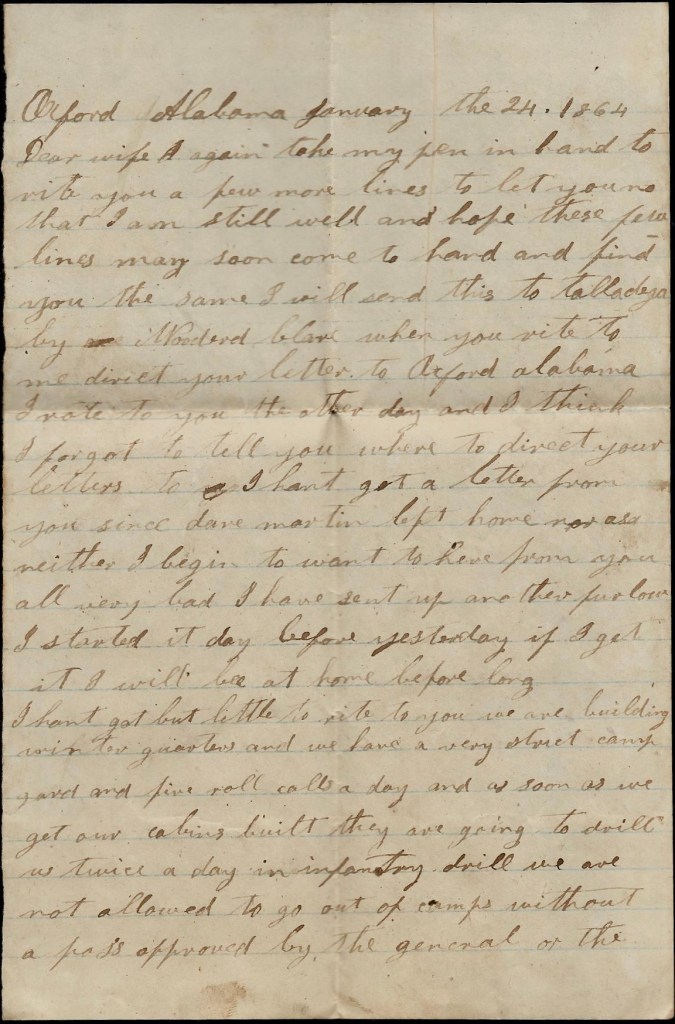 Oxford Alabama January the 24. 1864
Dear wife I again take my pen in hand to
rite you a few more lines to let you no
that I am still well and hope these few
lines may soon come to hand and find
you the same I will send this to talladega
by blare when you rite to
me direct your letter to Oxford alabama
I rote to you the other day and I think
I forgot to tell you where to direct your
letters to I hant got a letter from
you since dave martin left home
neither I begin to want to here from you
all very bad I have sent up another furlow
I started it day before yesterday if I get
it I will bee at home before long
I hant got but little to rite to you we are building
winter quarters and we have a very strict camp
gard and five roll calls a day and as soon as we
get our cabins built they are going to drill
us twice a day in infantry drill we are
not allowed to go out of camps without
a pass approved by the general or the